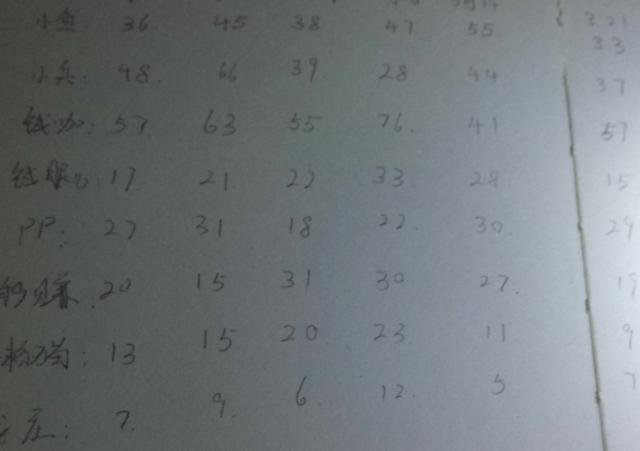 小鱼 36 45 38 47 55 3.21
33
小兵: 48. 66 39 28 44 37
钱咖: 57 63 55 76. 41 57
17 21 22 33 28 15
PP: 27 31 18 22. 30. 29
秒赚 20 15 31 30 27. 19
: 13 15 20 23 11 9
庄: 7. 9. 6. 12. 5 7